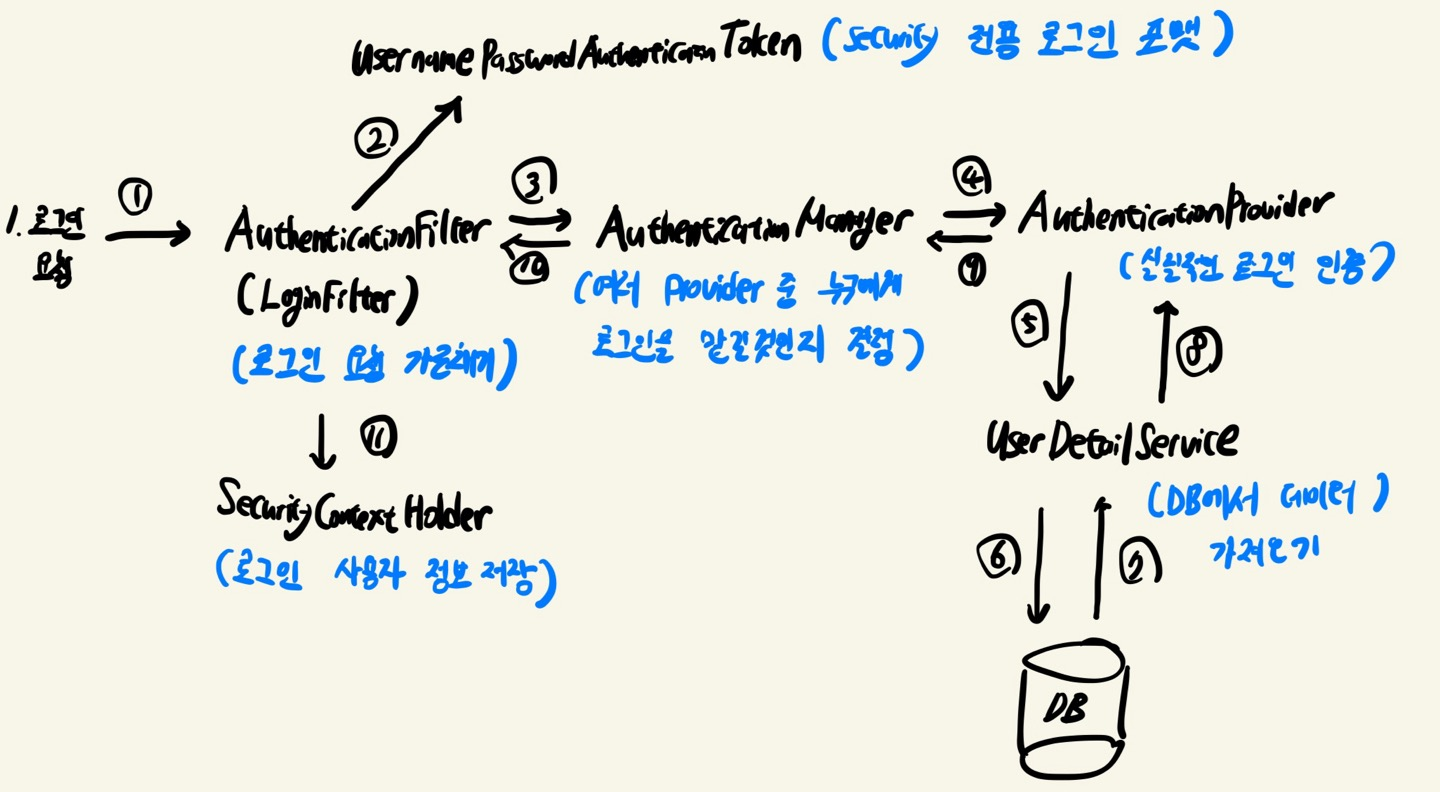 UsernamePasswordAuthenticationToken (security 전용 로그인 포맷)
②
1. 로그인
요청
①
AuthenticationFilter
(LoginFilter)
(로그인 요청 가로채기)
③
⑩
AuthenticationManager
(여러 Provider 중 누구에게
로그인을 맡길것인지 결정)
④
⑨
AuthenticationProvider
(실질적인 로그인 인증)
⑤
⑧
UserDetailService
(DB에서 데이터)
가져오기
⑥
⑦
DB
⑪
SecurityContextHolder
(로그인 사용자 정보 저장)